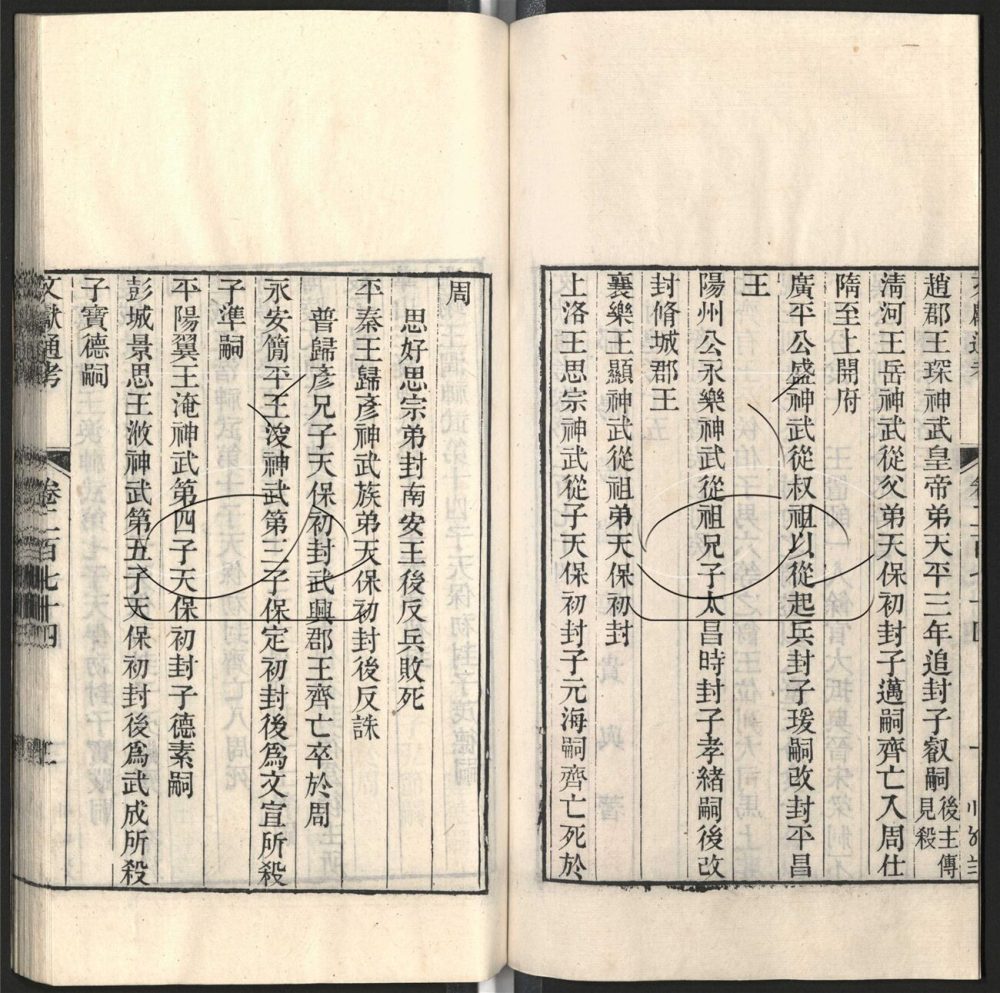 趙郡王琛神武皇帝弟天平三年追封子叡嗣後主傳見殺
清河王岳神武從父弟天保初封子邁嗣齊亡入周仕
隋至上開府
廣平公盛神武從叔祖以從起兵封子瑗嗣改封平昌
王
陽州公永樂神武從祖兄子太昌時封子孝緒嗣後改
封脩城郡王
襄樂王顯神武從祖弟天保初封
上洛王思宗神武從子天保初封子元海嗣齊亡死於
周
思好思宗弟封南安王後反兵敗死
平秦王歸彥神武族弟天保初封後反誅
普歸彥兄子天保初封武興郡王齊亡卒於周
永安簡平王浚神武第三子保定初封後爲文宣所殺
子準嗣
平陽翼王淹神武第四子天保初封子德素嗣
彭城景思王浟神武第五子天保初封後爲武成所殺
子寶德嗣
文獻通考 卷二百七十四